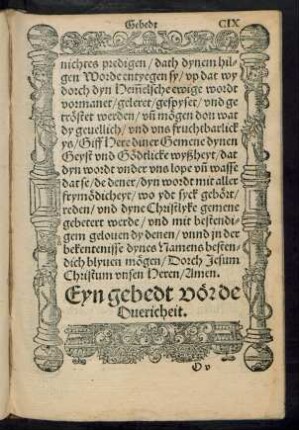 Gebedt CIX
nichtes predigen/dath dynem hil-
gen Worde entyegen sy/vp dat wy
dorch dyn Hem̃elsche ewige wordt
vormanet/geleret/gespyset/vnd ge
tröstet werden/vñ mögen don wat
dy geuellich/vnd vns fruchtbarlick
ys/Giff Here diner Gemene dynen
Geyst vnd Gödtlicke wyßheyt/dat
dyn wordt vnder vns lope vñ wasse
dat se/de dener/dyn wordt mit aller
frymödicheyt/wo ydt syck gehört/
reden/vnd dyne Christlyke gemene
gebetert werde/vnd mit bestendi-
gem gelouen dy denen/vnnd jn der
bekentenisse dynes Namens besten-
dich blyuen mögen/Dorch Jesum
Christum vnsen Heren/Amen.
Eyn gebedt vör de
Ouericheit.
O v